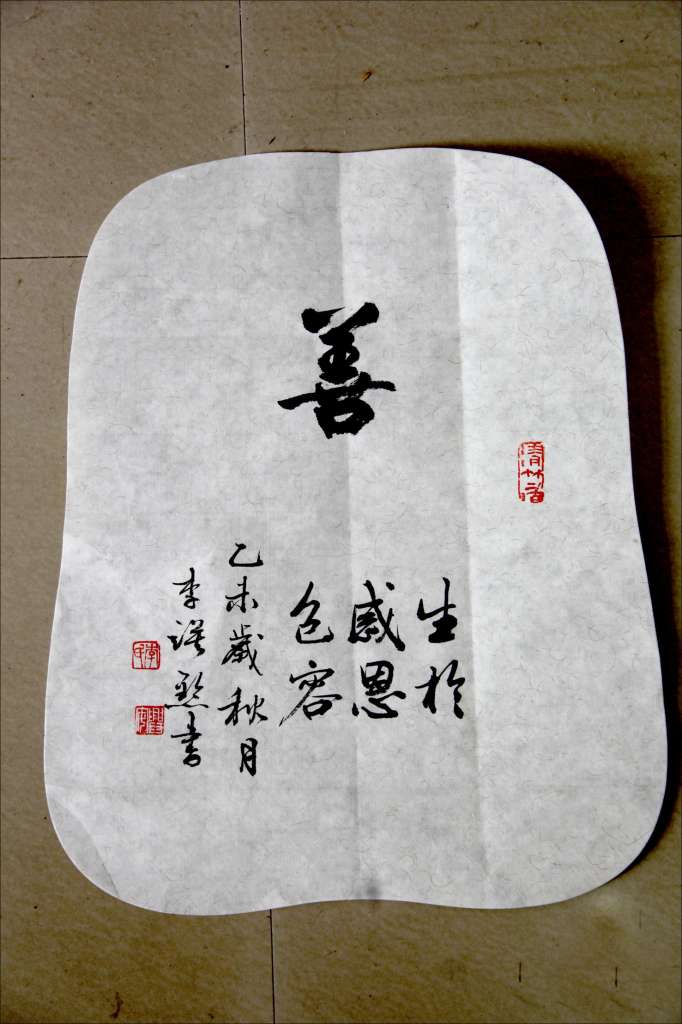 善
生於
感恩
包容
乙未歲秋月
李誤墨書